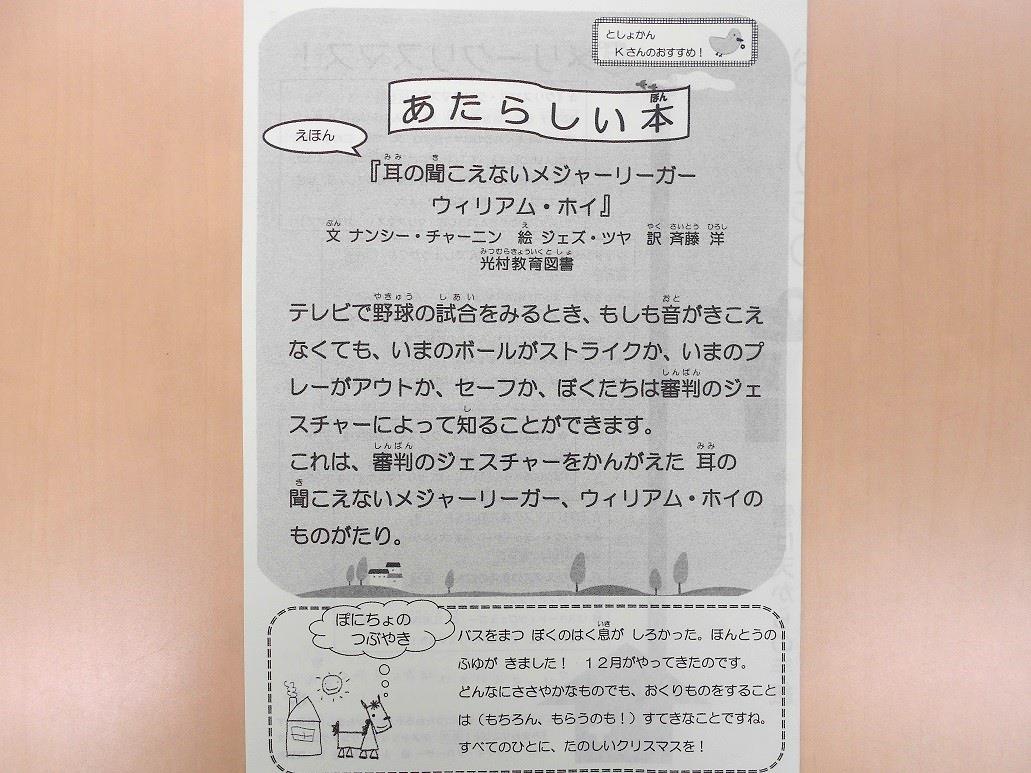 としょかん
Kさんのおすすめ！
あたらしい本
ほん
えほん
『耳の聞こえないメジャーリーガー
みみ き
ウィリアム・ホイ』
文 ナンシー・チャーニン 絵 ジェズ・ツヤ 訳 斉藤 洋
ぶん え やく さいとう ひろし
光村教育図書
みつむらきょういくとしょ
テレビで野球の試合をみるとき、もしも音がきこえ
やきゅう しあい おと
なくても、いまのボールがストライクか、いまのプ
レーがアウトか、セーフか、ぼくたちは審判のジェ
しんぱん
スチャーによって知ることができます。
し
これは、審判のジェスチャーをかんがえた 耳の
しんぱん みみ
聞こえないメジャーリーガー、ウィリアム・ホイの
き
ものがたり。
ぽにちょの
つぶやき
バスをまつ ぼくのはく息が しろかった。ほんとうの
いき
ふゆが きました！ 12月がやってきたのです。
どんなにささやかなものでも、おくりものをすること
は（もちろん、もらうのも！）すてきなことですね。
すべてのひとに、たのしいクリスマスを！